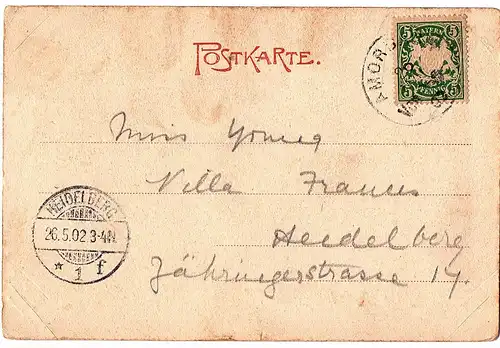 POSTKARTE.
BAYERN
5 5
5 PFENNIG 5
AMOR
Miss Young
Villa Frances
Heidelberg
Zähringerstrasse 14.
HEIDELBERG
26.5.02 3-4N.
* 1 f